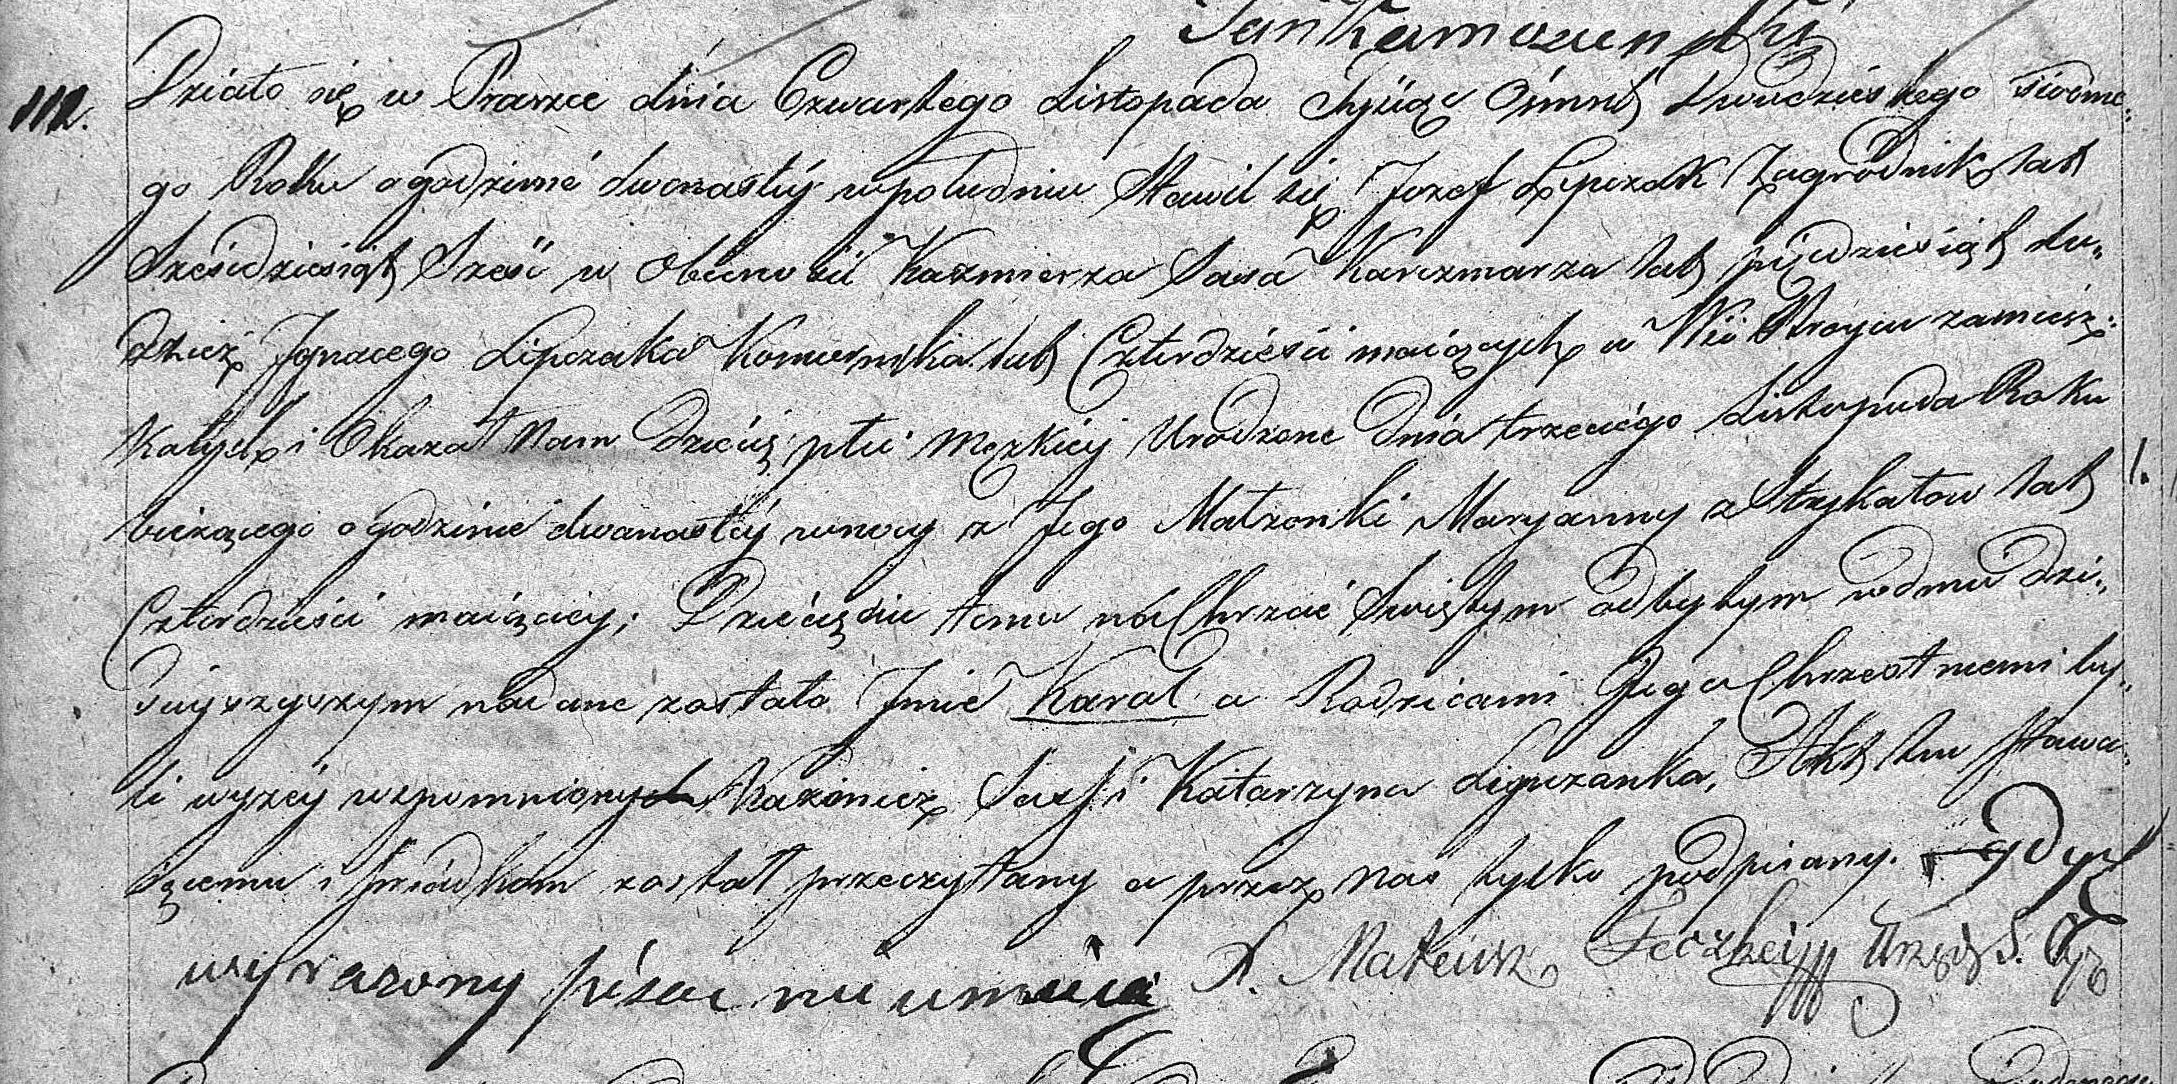 112.
Działo się w Praszce dnia Czwartego Listopada Tysiąc Ośmset Dwudziestego Siodme-
go Roku o godzinie dwonasty w południu Stawił się Jozef Lipczak Zagrodnik lat
Sześcdziesiąt Sześć w Obecności Kazmierza Sasa Karczmarza lat pięcdziesiąt tu-
dzież Ignacego Lipczaka Komornika lat Czterdzieści maiących w Wsi Stroycu zamiesz-
kałych i Okazał Nam Dziecię płci męzkiey Urodzone dnia trzeciego Listopada Roku
bieżącego o godzinie dwanasty w nocy z Jego Małzonki Maryanny z Strykałow lat
Czterdzieści maiącey; Dziecięciu temu na Chrzcie Swiętym odbytym w dniu dzi-
sieyszyszym nadane zostało Jmie Karol a Rodzicami Jego Chrzestnemi by-
li wyżey wspomniony Kaźmierz Sas i Katarzyna Liguzanka, Akt ten Stawa-
iącemu i świadkom został przeczytany a przez nas tylko podpisany. gdyż
wyrazony pisac nie umieią X. Mateusz Urzęd. S. Cyw